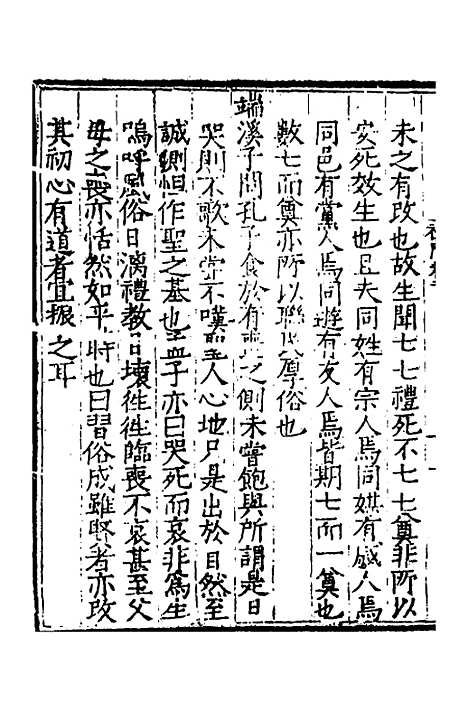 未之有改也故生聞七七禮死不七七奠非所以
安死效生也且夫同姓有宗人焉同媒有戚人焉
同邑有黨人焉同遊有友人焉皆期七而一奠也
數七而奠亦所以聯民厚俗也
端溪子問孔子食於有喪之側未嘗飽與所謂是日
哭則不歌未嘗不嘆聖人心地只是出於自然至
誠惻怛作聖之基也孟子亦曰哭死而哀非為生
嗚呼風俗日漓禮教日壞徃徃臨喪不哀甚至父
母之喪亦恬然如平時也曰習俗成雖賢者亦改
其初心有道者宜振之耳